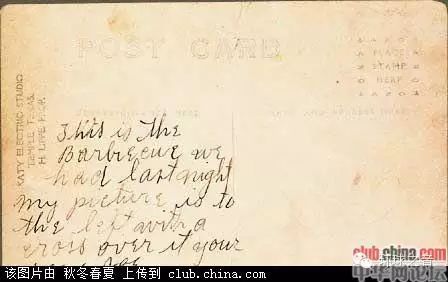 POST CARD
PLACE
STAMP
HERE
KATY ELECTRIC STUDIO
TEMPLE TEXAS
H. LIPPE PROP.
This is the
Barbecue we
had last night
my picture is to
the left with a
cross over it your
club.china.com
中华网论坛
该图片由 秋冬春夏 上传到 club.china.com